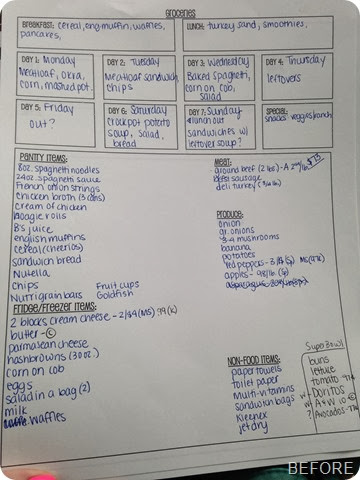 GROCERIES
BREAKFAST: cereal, eng. muffin, waffles, pancakes,
LUNCH: turkey sand, smoothies,
DAY 1: Monday
Meatloaf, okra, corn, mashed pot.
DAY 2: Tuesday
Meatloaf sandwich chips
DAY 3: Wednesday
Baked spaghetti, corn on cob, salad
DAY 4: Thursday
leftovers
DAY 5: Friday
out?
DAY 6: Saturday
crockpot potato soup, salad, bread
DAY 7: Sunday
sandwiches w/ leftover soup?
SPECIAL:
snacks veggies/ranch
PANTRY ITEMS:
8oz. spaghetti noodles
24oz spaghetti sauce
French onion strings
chicken broth (3 cans)
cream of chicken
boogie rolls
B's juice
english muffins
cereal (cheerios)
sandwich bread
Nutella
chips
Nutrigrain bars
Fruit cups
Goldfish
MEAT:
ground beef (2 lbs)
sausage
deli turkey
PRODUCE:
onion
gr. onions
mushrooms
banana
potatoes
red peppers
apples - .98/lb
asparagus
FRIDGE/FREEZER ITEMS:
2 blocks cream cheese - 2/$4 (MS) .99 (K)
butter - C
parmalean cheese
hashbrowns (30oz.)
corn on cob
eggs
salad in a bag (2)
milk
waffles
NON-FOOD ITEMS:
paper towels
toilet paper
Multi-vitamins
sandwich bags
Kleenex
jet dry
Super Bowl
buns
lettuce
tomato
Doritos
A&W
? Avocados
BEFORE